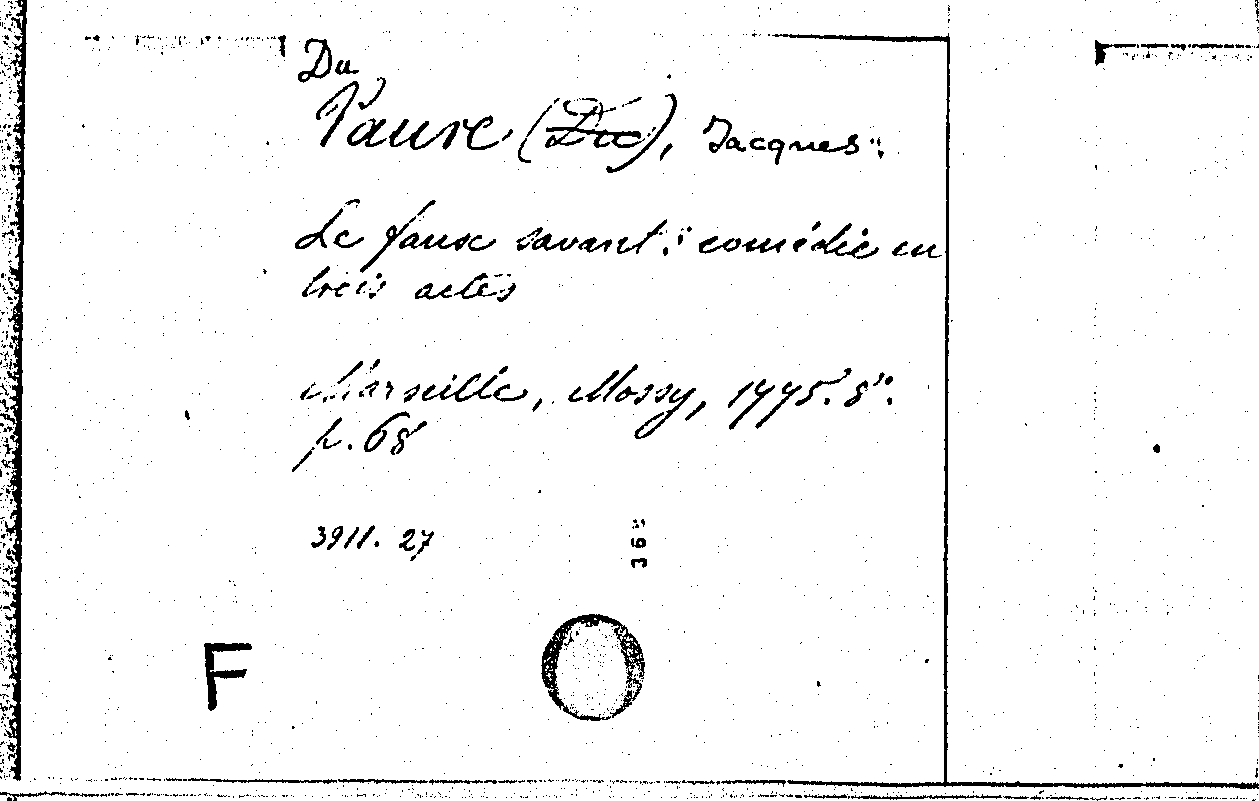 Du
Vaure (Du), Jacques:
Le faux savant: comédie en
trois actes
Marseille, Mossy, 1775. 8°.
p. 68
3911. 27
F